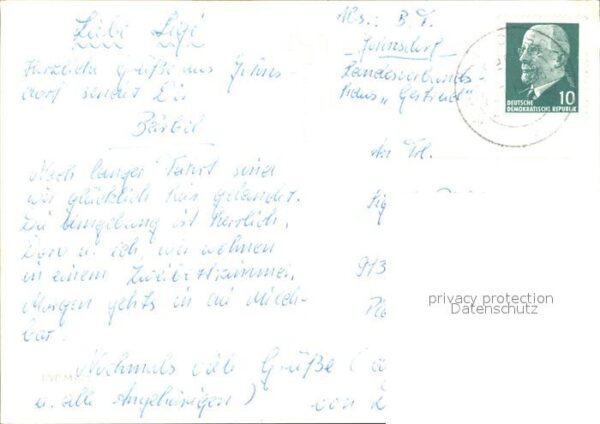 Liebe Sigi
Herzliche Grüße aus Johns-
dorf sendet Dir
Bärbel
Nach langer Fahrt sind
wir glücklich hier gelandet.
Die Umgebung ist herrlich.
Doro u. ich, wir wohnen
in einem Zweibettzimmer.
Morgen gehts in die Milch-
bar.
Nochmals viele Grüße (a
u. alle Angehörigen)
von
Abs.: B. F.
Johnsdorf
Landesverbands-
Haus „Gertrud"
An Frl.
Sig
913
DEUTSCHE
DEMOKRATISCHE REPUBLIK
10
privacy protection
Datenschutz